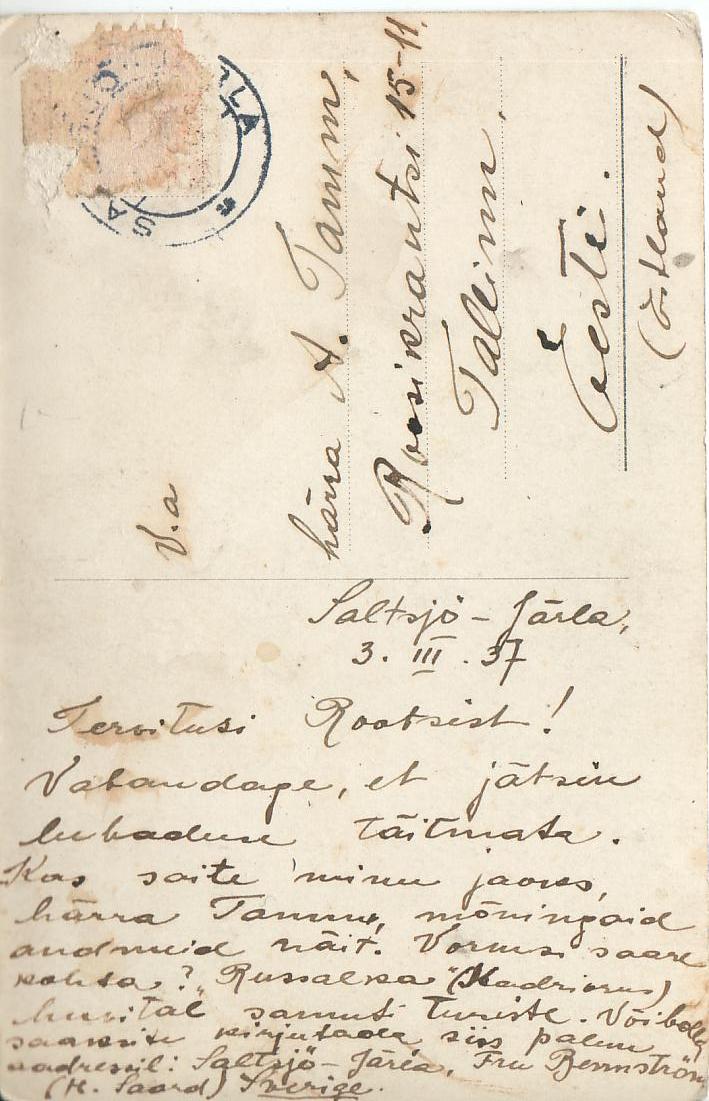 V.a
härra A. Tamm,
Roosikrantsi 15-11.
Tallinn.
Eesti.
(Östland)
Saltsjö-Järla,
3. III. 37
Tervitusi Rootsist!
Vabandage, et jätsin
lubaduse täitmata.
Kas saite minu jaoks,
härra Tamm, mõningaid
andmeid näit. Vormsi saare
kohta? "Russalka" (Kadriorus)
huvitab samuti turiste. Võibolla
saaksite kirjutada siis palun
aadressil: Saltsjö-Järla, Fru Bennström
(H. Saard) Sverige.